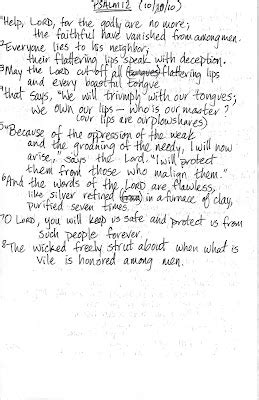 PSALM 12 (10/30/10)
1"Help, LORD, for the godly are no more;
the faithful have vanished from among men.
2Everyone lies to his neighbor;
their flattering lips speak with deception.
3May the LORD cut off all tongues) flattering lips
and every boastful tongue
4that says, "We will triumph with our tongues;
we own our lips — who is our master?
(our lips are our plowshares)
5"Because of the oppression of the weak
and the groaning of the needy, I will now
arise," says the Lord. "I will protect
them from those who malign them."
6And the words of the LORD are flawless,
like silver refined in a furnace of clay,
purified seven times.
7O LORD, you will keep us safe and protect us from
such people forever.
8The wicked freely strut about when what is
vile is honored among men.